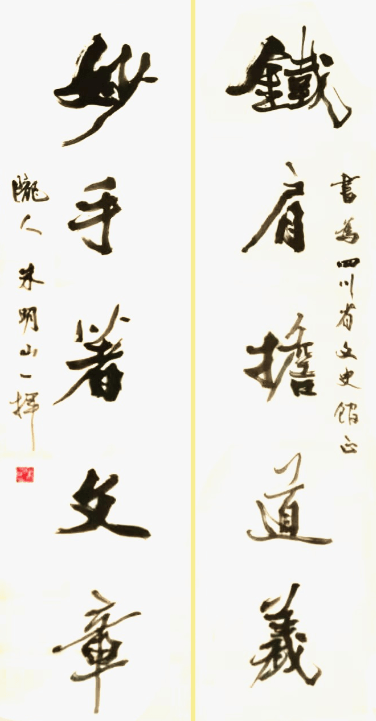 書為四川省文史館正
鐵肩擔道義
妙手著文章
隴人朱明山一揮